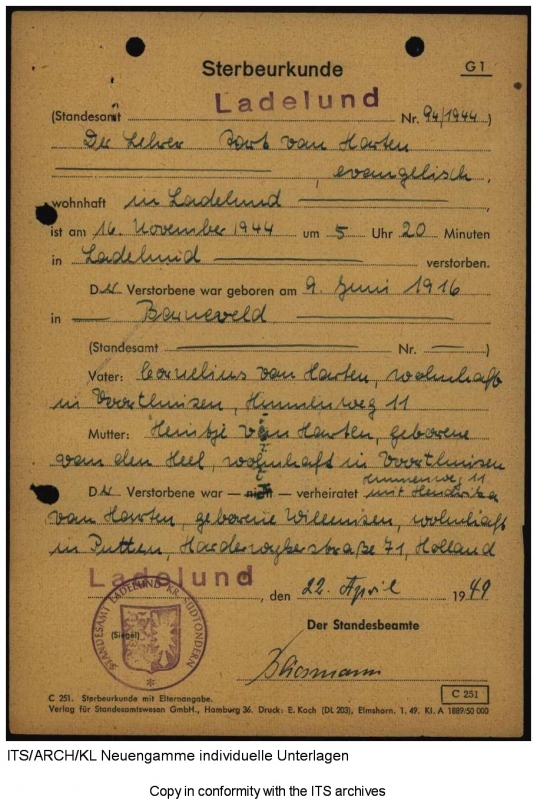 Sterbeurkunde
G 1
(Standesamt Ladelund Nr. 94/1944)
Der Lehrer Bart van Harten
, evangelisch,
wohnhaft in Ladelund
ist am 16. November 1944 um 5 Uhr 20 Minuten
in Ladelund verstorben.
Der Verstorbene war geboren am 9. Juni 1916
in Barneveld
(Standesamt Nr. )
Vater: Cornelius van Harten, wohnhaft
in Voorthuisen, Hunnenweg 11
Mutter: van Harten, geborene
van den Heel, wohnhaft in Voorthuisen
Hunnenweg 11
Der Verstorbene war — nicht — verheiratet mit Hendrika
van Harten, geborene Willemsen, wohnhaft
in Putten, Harderwykerstraße 71, Holland
Ladelund, den 22. April 1949
STANDESAMT LADELUND KR. SÜDTONDERN
(Siegel)
Der Standesbeamte
C 251. Sterbeurkunde mit Elternangabe.
C 251
Verlag für Standesamtswesen GmbH., Hamburg 36. Druck: E. Koch (DL 203), Elmshorn. 1. 49. Kl. A 1889/50 000
ITS/ARCH/KL Neuengamme individuelle Unterlagen
Copy in conformity with the ITS archives